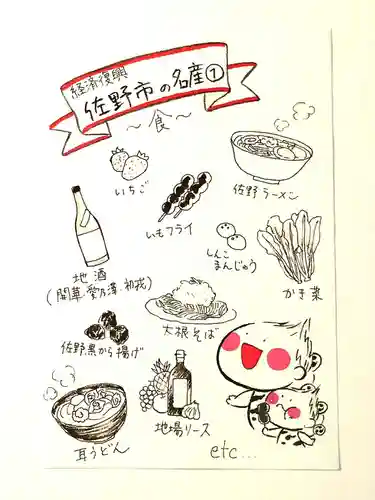 経済復興
佐野市の名産①
〜食〜
いちご
いもフライ
佐野ラーメン
地酒
(開華
しんこ
まんじゅう
かき菜
佐野黒から揚げ
大根そば
耳うどん
地場ソース
etc...